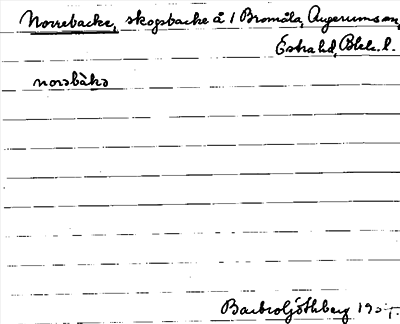 Norrebacke, skogsbacke å 1 Bromåla, Augerums sn,
Östra hd, Blek. l.
norəbakə
Barbro Göthberg 19